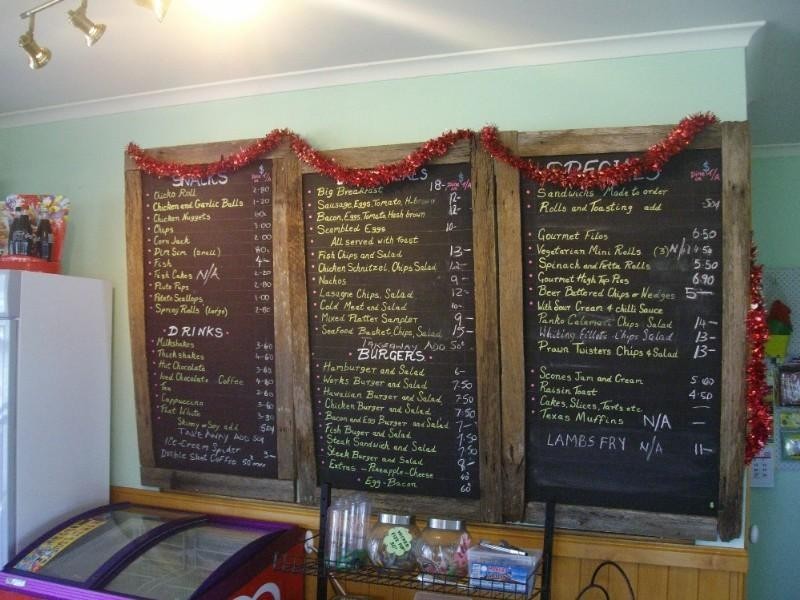 SNACKS
Chicko Roll 2-80
Chicken and Garlic Balls 1-20
Chicken Nuggets
Chips
Corn Jack
Dim Sim (small) 80c
Fish
Fish Cakes N/A
Pluto Pups 2-80
Potato Scallops 1-00
Spring Rolls (large) 2-80
DRINKS
Milkshakes 3-60
Thick shakes 4-60
Hot Chocolate
Iced Chocolate Coffee
Tea
Cappuccino
Flat White
Skinny or Soy add 50¢
TAKE AWAY ADD 50¢
Ice-Cream Spider 3-
Double Shot Coffee 50¢
Big Breakfast 18-
Sausage, Eggs, Tomato, H.brown 12-
Bacon, Eggs, Tomato, Hash brown 12-
Scembled Eggs 10-
All served with toast
Fish Chips and Salad 13-
Chicken Schnitzol, Chips Salad 12-
Nachos 9-
Lasagne Chips, Salad 12-
Cold Meat and Salad 10-
Mixed Platter Sampler 9-
Seafood Basket, Chips, Salad 15-
TAKEAWAY ADD 50¢
BURGERS
Hamburger and Salad 6-
Works Burger and Salad 7-50
Hawaiian Burger and Salad 7-50
Chicken Burger and Salad 7-50
Bacon and Egg Burger and Salad
Fish Buger and Salad 7-50
Steak Sandwich and Salad 7-50
Steak Burger and Salad 8-
Extras - Pineapple-Cheese 40
Egg-Bacon 60
SPECIALS
Sandwichs Made to order
Rolls and Toasting add 50¢
Gourmet Filos 6-50
Vegetarian Mini Rolls (3) N/A 4-50
Spinach and Fetta Rolls 5-50
Gourmet High Top Pies 6-90
Beer Battered Chips or Wedges 5-
With Sour Cream & chilli Sauce
Panko Calamari Chips Salad 14-
Whiting Fillets Chips Salad 13-
Prawn Twisters Chips & Salad 13-
Scones Jam and Cream
Raisin Toast 4-50
Cakes, Slices, Tarts etc
Texas Muffins N/A
LAMBS FRY N/A 11-